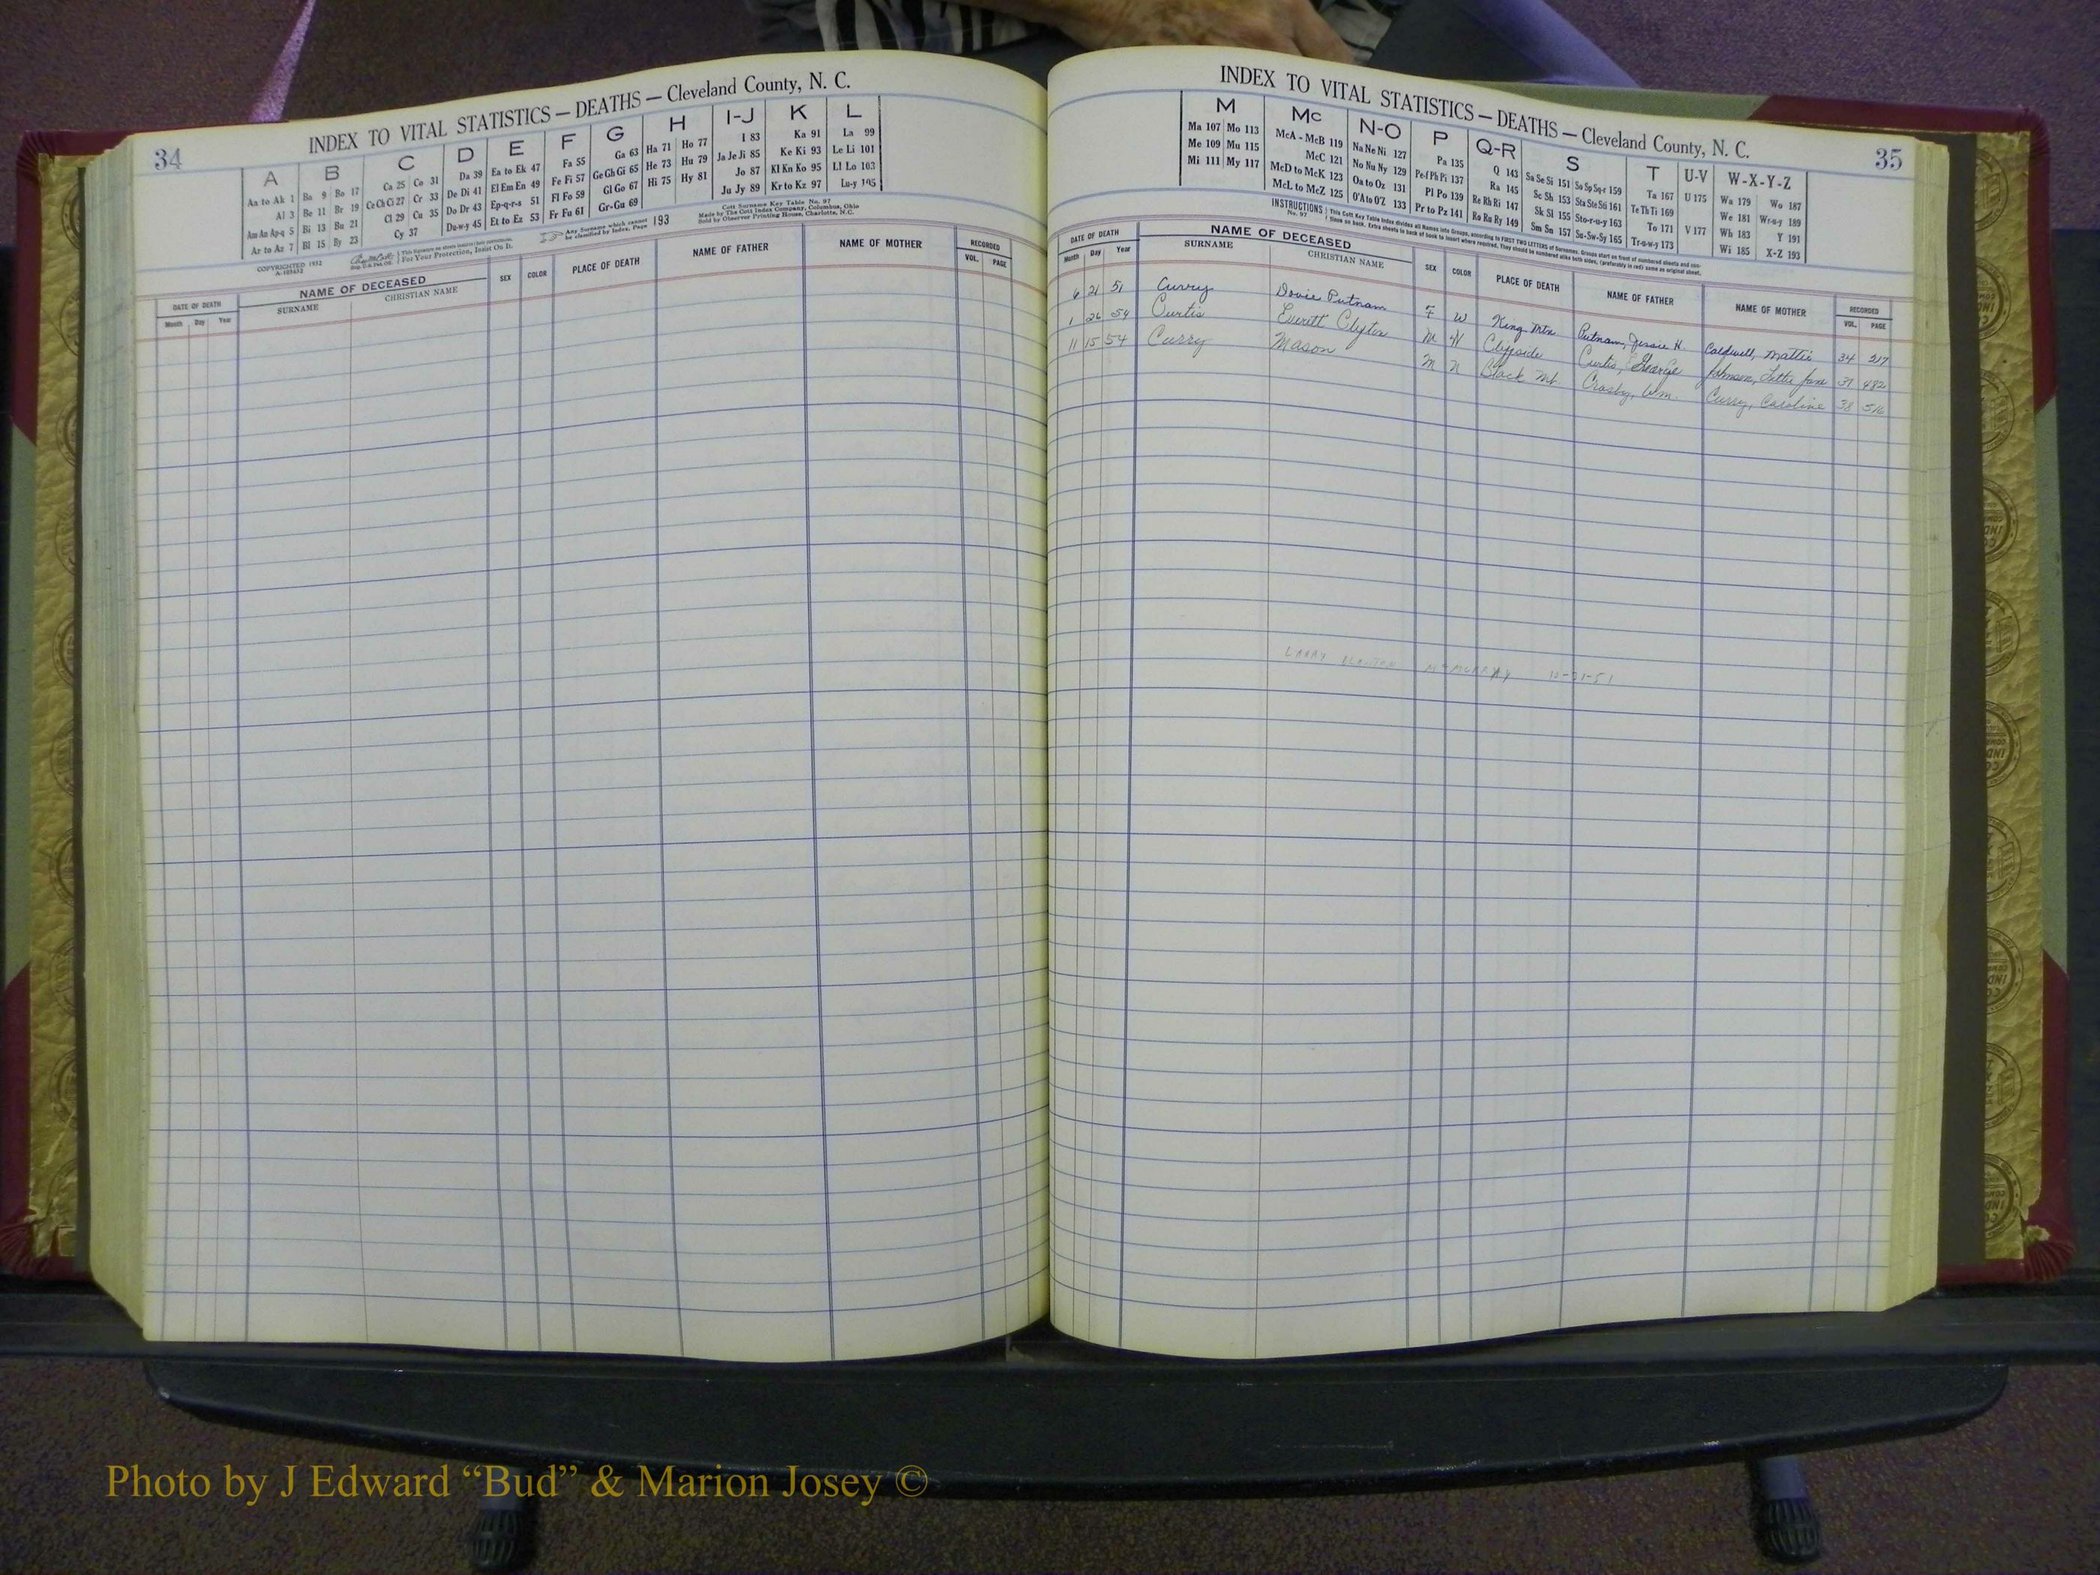 34
INDEX TO VITAL STATISTICS — DEATHS — Cleveland County, N. C.
A B C D E F G H I-J K L
Aa to Ak 1 Ba 9 Bo 17 Ca 25 Co 31 Da 39 Ea to Ek 47 Fa 55 Ga 63 Ha 71 Ho 77 I 83 Ka 91 La 99
Al 3 Be 11 Br 19 Ce Ch Ci 27 Cr 33 De Di 41 El Em En 49 Fe Fi 57 Ge Gh Gi 65 He 73 Hu 79 Ja Je Ji 85 Ke Ki 93 Le Li 101
Am An Ap-q 5 Bi 13 Bu 21 Cl 29 Cu 35 Do Dr 43 Ep-q-r-s 51 Fl Fo 59 Gl Go 67 Hi 75 Hy 81 Jo 87 Kl Kn Ko 95 Ll Lo 103
Ar to Az 7 Bl 15 By 23 Cy 37 Du-w-y 45 Et to Ez 53 Fr Fu 61 Gr-Gu 69 Ju Jy 89 Kr to Kz 97 Lu-y 105
COPYRIGHTED 1932
For Your Protection, Insist On It.
Any Surname which cannot be classified by Index, Page 193
Cott Surname Key Table No. 97
Made by The Cott Index Company, Columbus, Ohio
Sold by Observer Printing House, Charlotte, N. C.
DATE OF DEATH NAME OF DECEASED SEX COLOR PLACE OF DEATH NAME OF FATHER NAME OF MOTHER RECORDED
Month Day Year SURNAME CHRISTIAN NAME VOL. PAGE
INDEX TO VITAL STATISTICS — DEATHS — Cleveland County, N. C.
35
M Mc N-O P Q-R S T U-V W-X-Y-Z
Ma 107 Mo 113 McA - McB 119 Na Ne Ni 127 Pa 135 Q 143 Sa Se Si 151 So Sp Sq-r 159 Ta 167 U 175 Wa 179 Wo 187
Me 109 Mu 115 McC 121 No Nu Ny 129 Pe-f Ph Pi 137 Ra 145 Sc Sh 153 Sta Ste Sti 161 Te Th Ti 169 We 181 Wr-u-y 189
Mi 111 My 117 McD to McK 123 Oa to Oz 131 Pl Po 139 Re Rh Ri 147 Sk Sl 155 Sto-r-u-y 163 To 171 V 177 Wh 183 Y 191
McL to McZ 125 O'A to O'Z 133 Pr to Pz 141 Ro Ru Ry 149 Sm Sn 157 Su-Sw-Sy 165 Tr-u-w-y 173 Wi 185 X-Z 193
INSTRUCTIONS No. 97 This Cott Key Table Index divides all Names into Groups, according to FIRST TWO LETTERS of Surnames.
DATE OF DEATH NAME OF DECEASED SEX COLOR PLACE OF DEATH NAME OF FATHER NAME OF MOTHER RECORDED
Month Day Year SURNAME CHRISTIAN NAME VOL. PAGE
6 21 51 Curry Dovie Putnam F W King Mtn Putnam, Jessie H. Caldwell, Mattie 34 217
1 26 54 Curtis Everett Clyton M W Cliffside Curtis, George Johnson, Jane 37 482
11 15 54 Curry Mason M N Black Mt Crosby, Wm. Curry, Caroline 38 516
LARRY MCMURRAY 10-21-51
Photo by J Edward “Bud” & Marion Josey ©